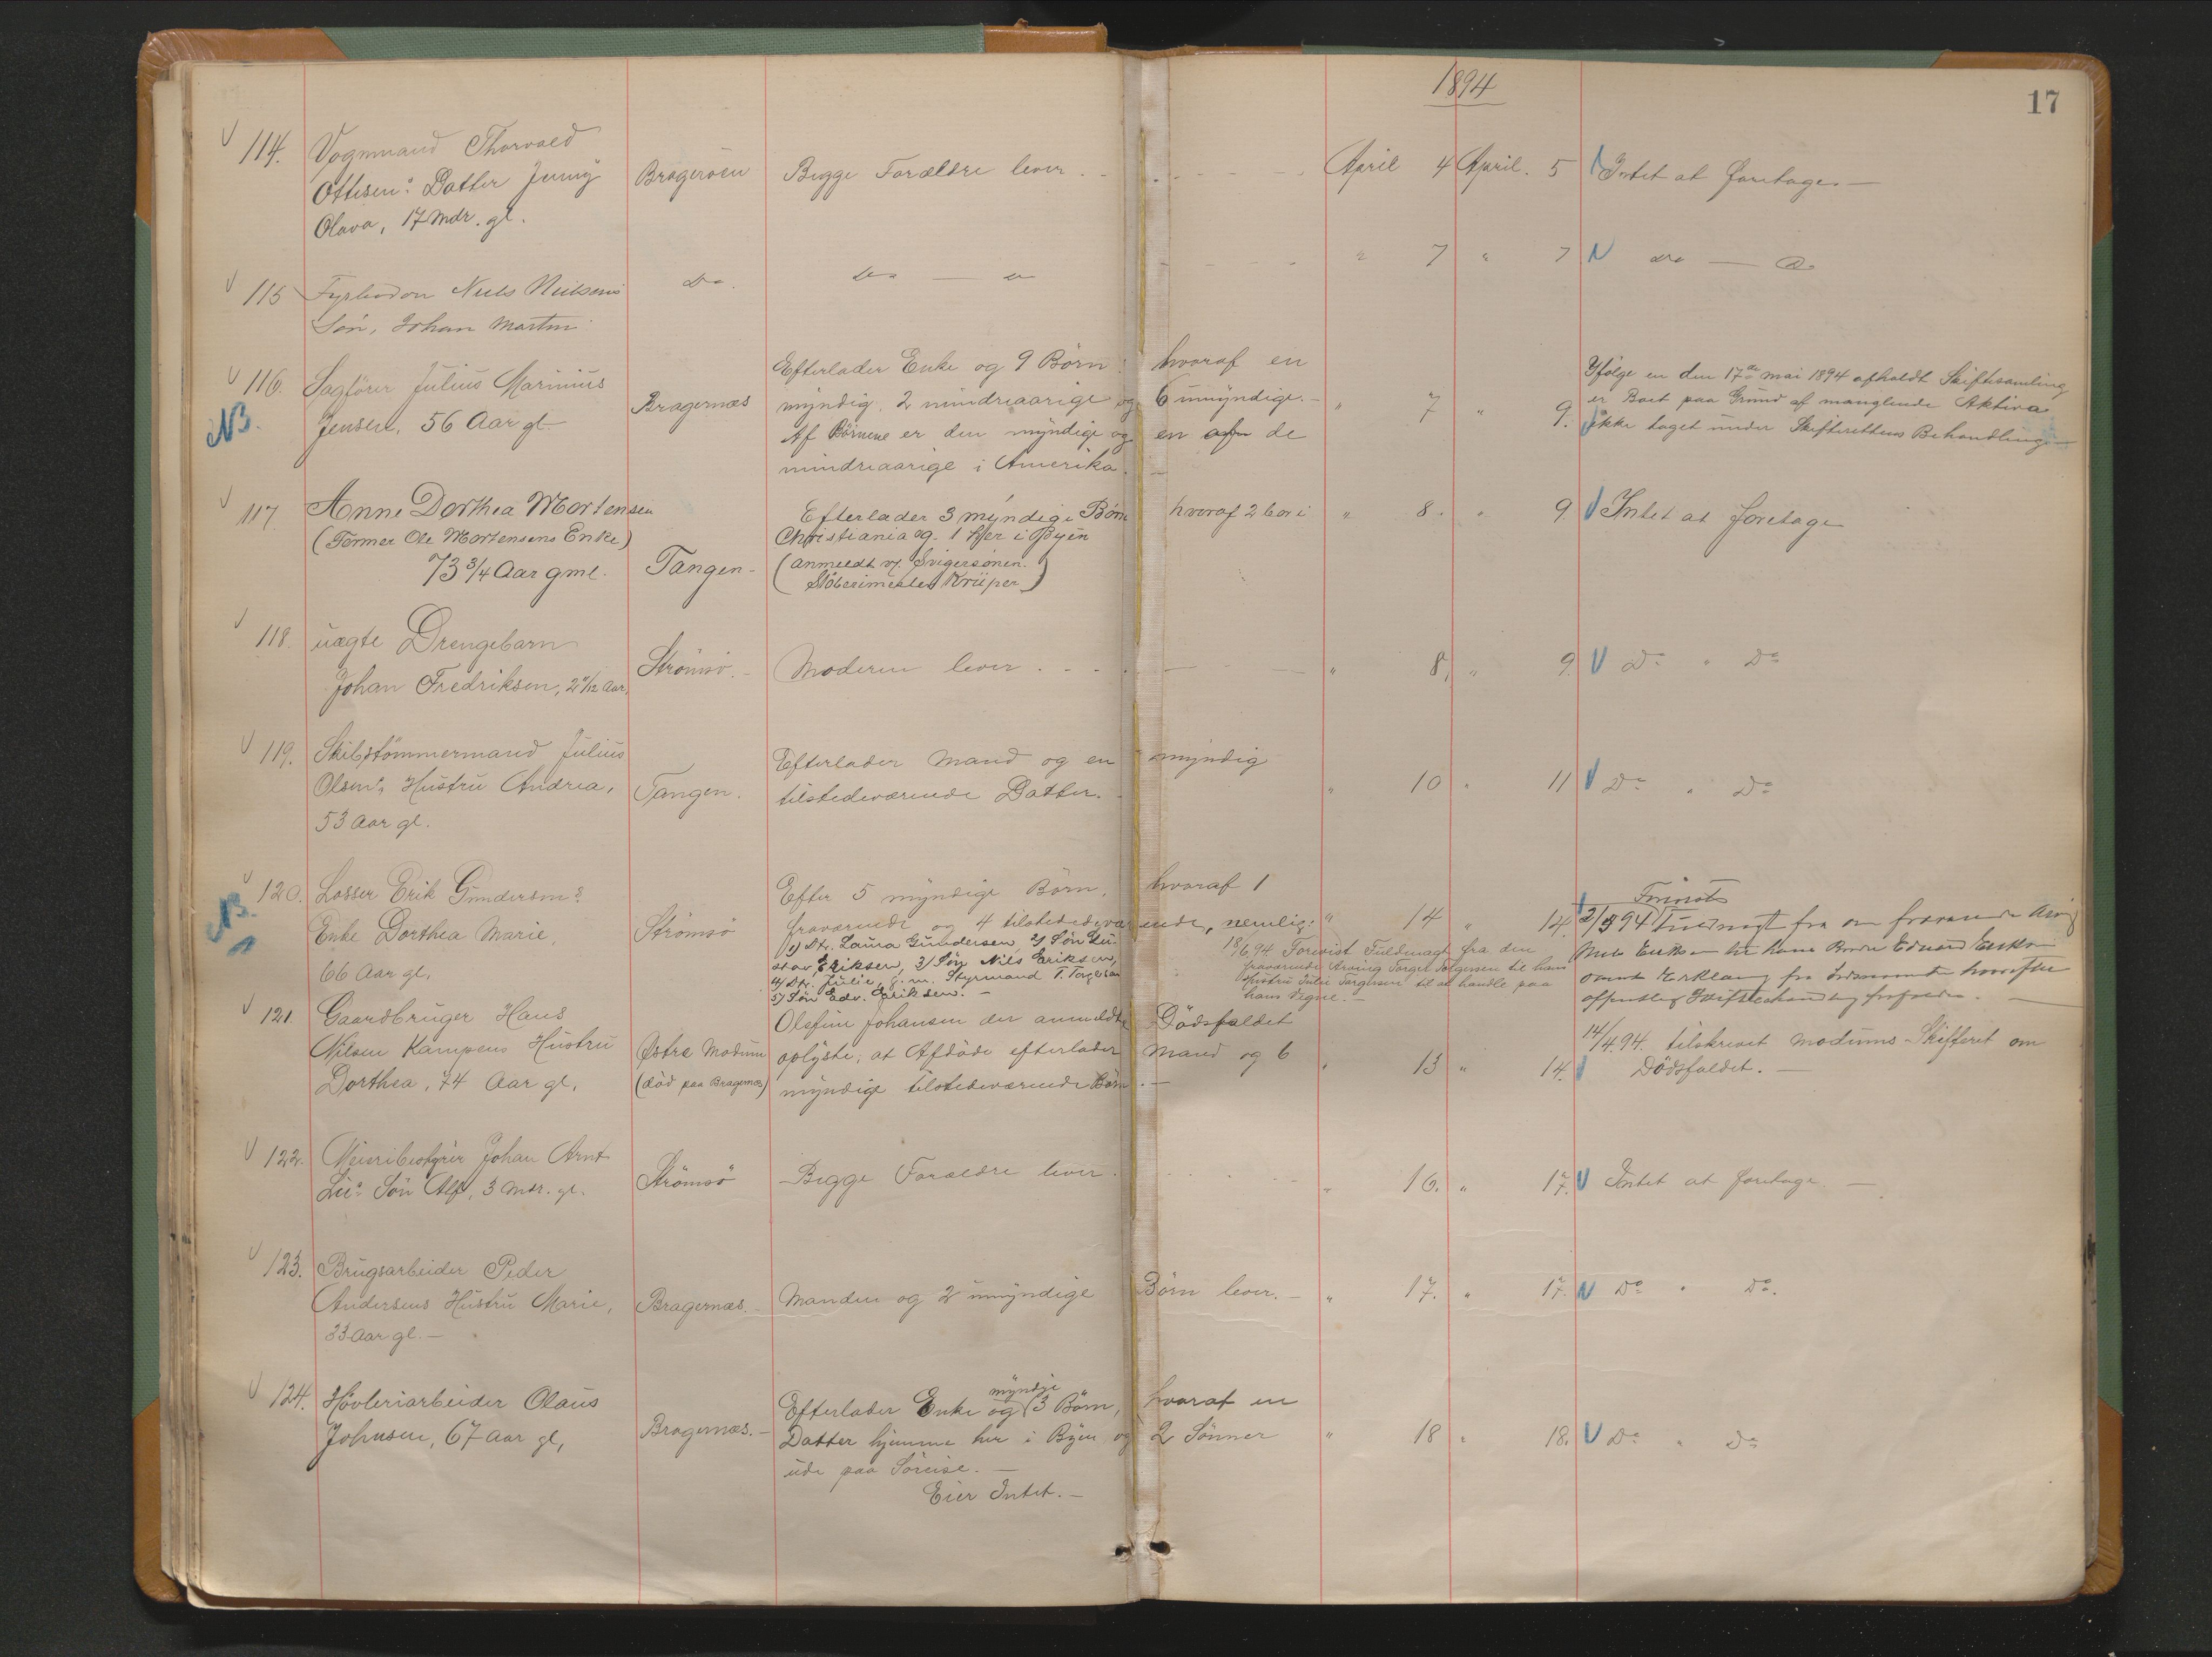 1894
17
114. Vognmand Thorvald
Ottisens Datter Jenny
Olava, 17 Mdr. gl.
Bragerøen
Begge Forældre lever
April 4 April. 5
Intet at foretage. —
115 Fyrbøder Niels Nielsens
Søn, Johan Martin
Do.
do — do
" 7 " 7
do — do
116. Sagfører Julius Marinius
Jensen, 56 Aar gl.
NB.
Bragernæs
Efterlader Enke og 9 Børn: hvoraf en
myndig, 2 mindreaarige og 6 umyndige. —
Af Børnene er den myndige og en af de
mindreaarige i Amerika. —
" 7 " 9.
Ifølge en den 17de Mai 1894 afholdt Skiftesamling
er Boet paa Grund af manglende Aktiva
ikke taget under Skifterettens Behandling. —
117. Anne Dorthea Mortensen
(Tømmer Ole Mortensens Enke)
73 3/4 Aar gml.
Tangen —
Efterlader 3 myndige Børn hvoraf 2 bor i
Christiania og 1 her i Byen
(anmeldt v/ Svigersønen
Støberimester Krüper)
" 8. " 9.
Intet at foretage
118. uægte Drengebarn
Johan Fredriksen, 2 11/12 Aar.
Strømsø. —
Moderen lever
" 8, " 9.
Do " Do
119. Skibstømmermand Julius
Olsens Hustru Andrea,
53 Aar gl.
Tangen.
Efterlader Mand og en myndig
tilstedeværende Datter. —
" 10 " 11
Do " Do
120. Losser Erik Gundersens
Enke Dorthea Marie,
66 Aar gl.
NB.
Strømsø
Efter 5 myndige Børn, hvoraf 1
fraværende og 4 tilstedeværende, nemlig:
1) Dtr. Laura Gundersen, 2) Søn Gu-
stav Eriksen, 3) Søn Nils Eriksen,
4) Dtr. Julie, g. m. Styrmand T. Torgersen
5) Søn Edv. Eriksen. —
18/6 94 Forevist Fuldmagt fra den
fraværende Arving Torger Torgersen til hans
Hustru Julie Torgersen til at handle paa
hans Vegne. —
" 14 " 14.
Forevist
2/5 94 Fuldmagt fra en fraværende Arving
Nils Eriksen til hans Broder Edvard Eriksen
samt Erklæring fra hvorefter
offentlig Skiftebehandling frafaldes. —
121. Gaardbruger Hans
Nilsen Kampens Hustru
Dorthea, 74 Aar gl.
Østre Modum
(død paa Bragernæs)
Olefine Johansen der anmeldte Dødsfaldet
oplyste, at Afdøde efterlader Mand og 6
myndige tilstedeværende Børn. —
" 13 " 14.
14/4 94. tilskrevet Modums Skifteret om
Dødsfaldet. —
122. Meieribestyrer Johan Arnt
Lies Søn Alf, 3 Mdr. gl.
Strømsø
Begge Forældre lever.
" 16. " 17.
Intet at foretage. —
123. Brugsarbeider Peder
Andersens Hustru Marie,
33 Aar gl. —
Bragernæs. —
Manden og 2 umyndige Børn lever. —
" 17. " 17.
Do " Do.
124. Høvleriarbeider Olaus
Johnsen, 67 Aar gl,
Bragernæs. —
myndige
Efterlader Enke og 3 Børn, hvoraf en
Datter hjemme her i Byen og 2 Sønner
ude paa Søreise. —
Eier Intet. —
" 18 " 18.
Do " Do